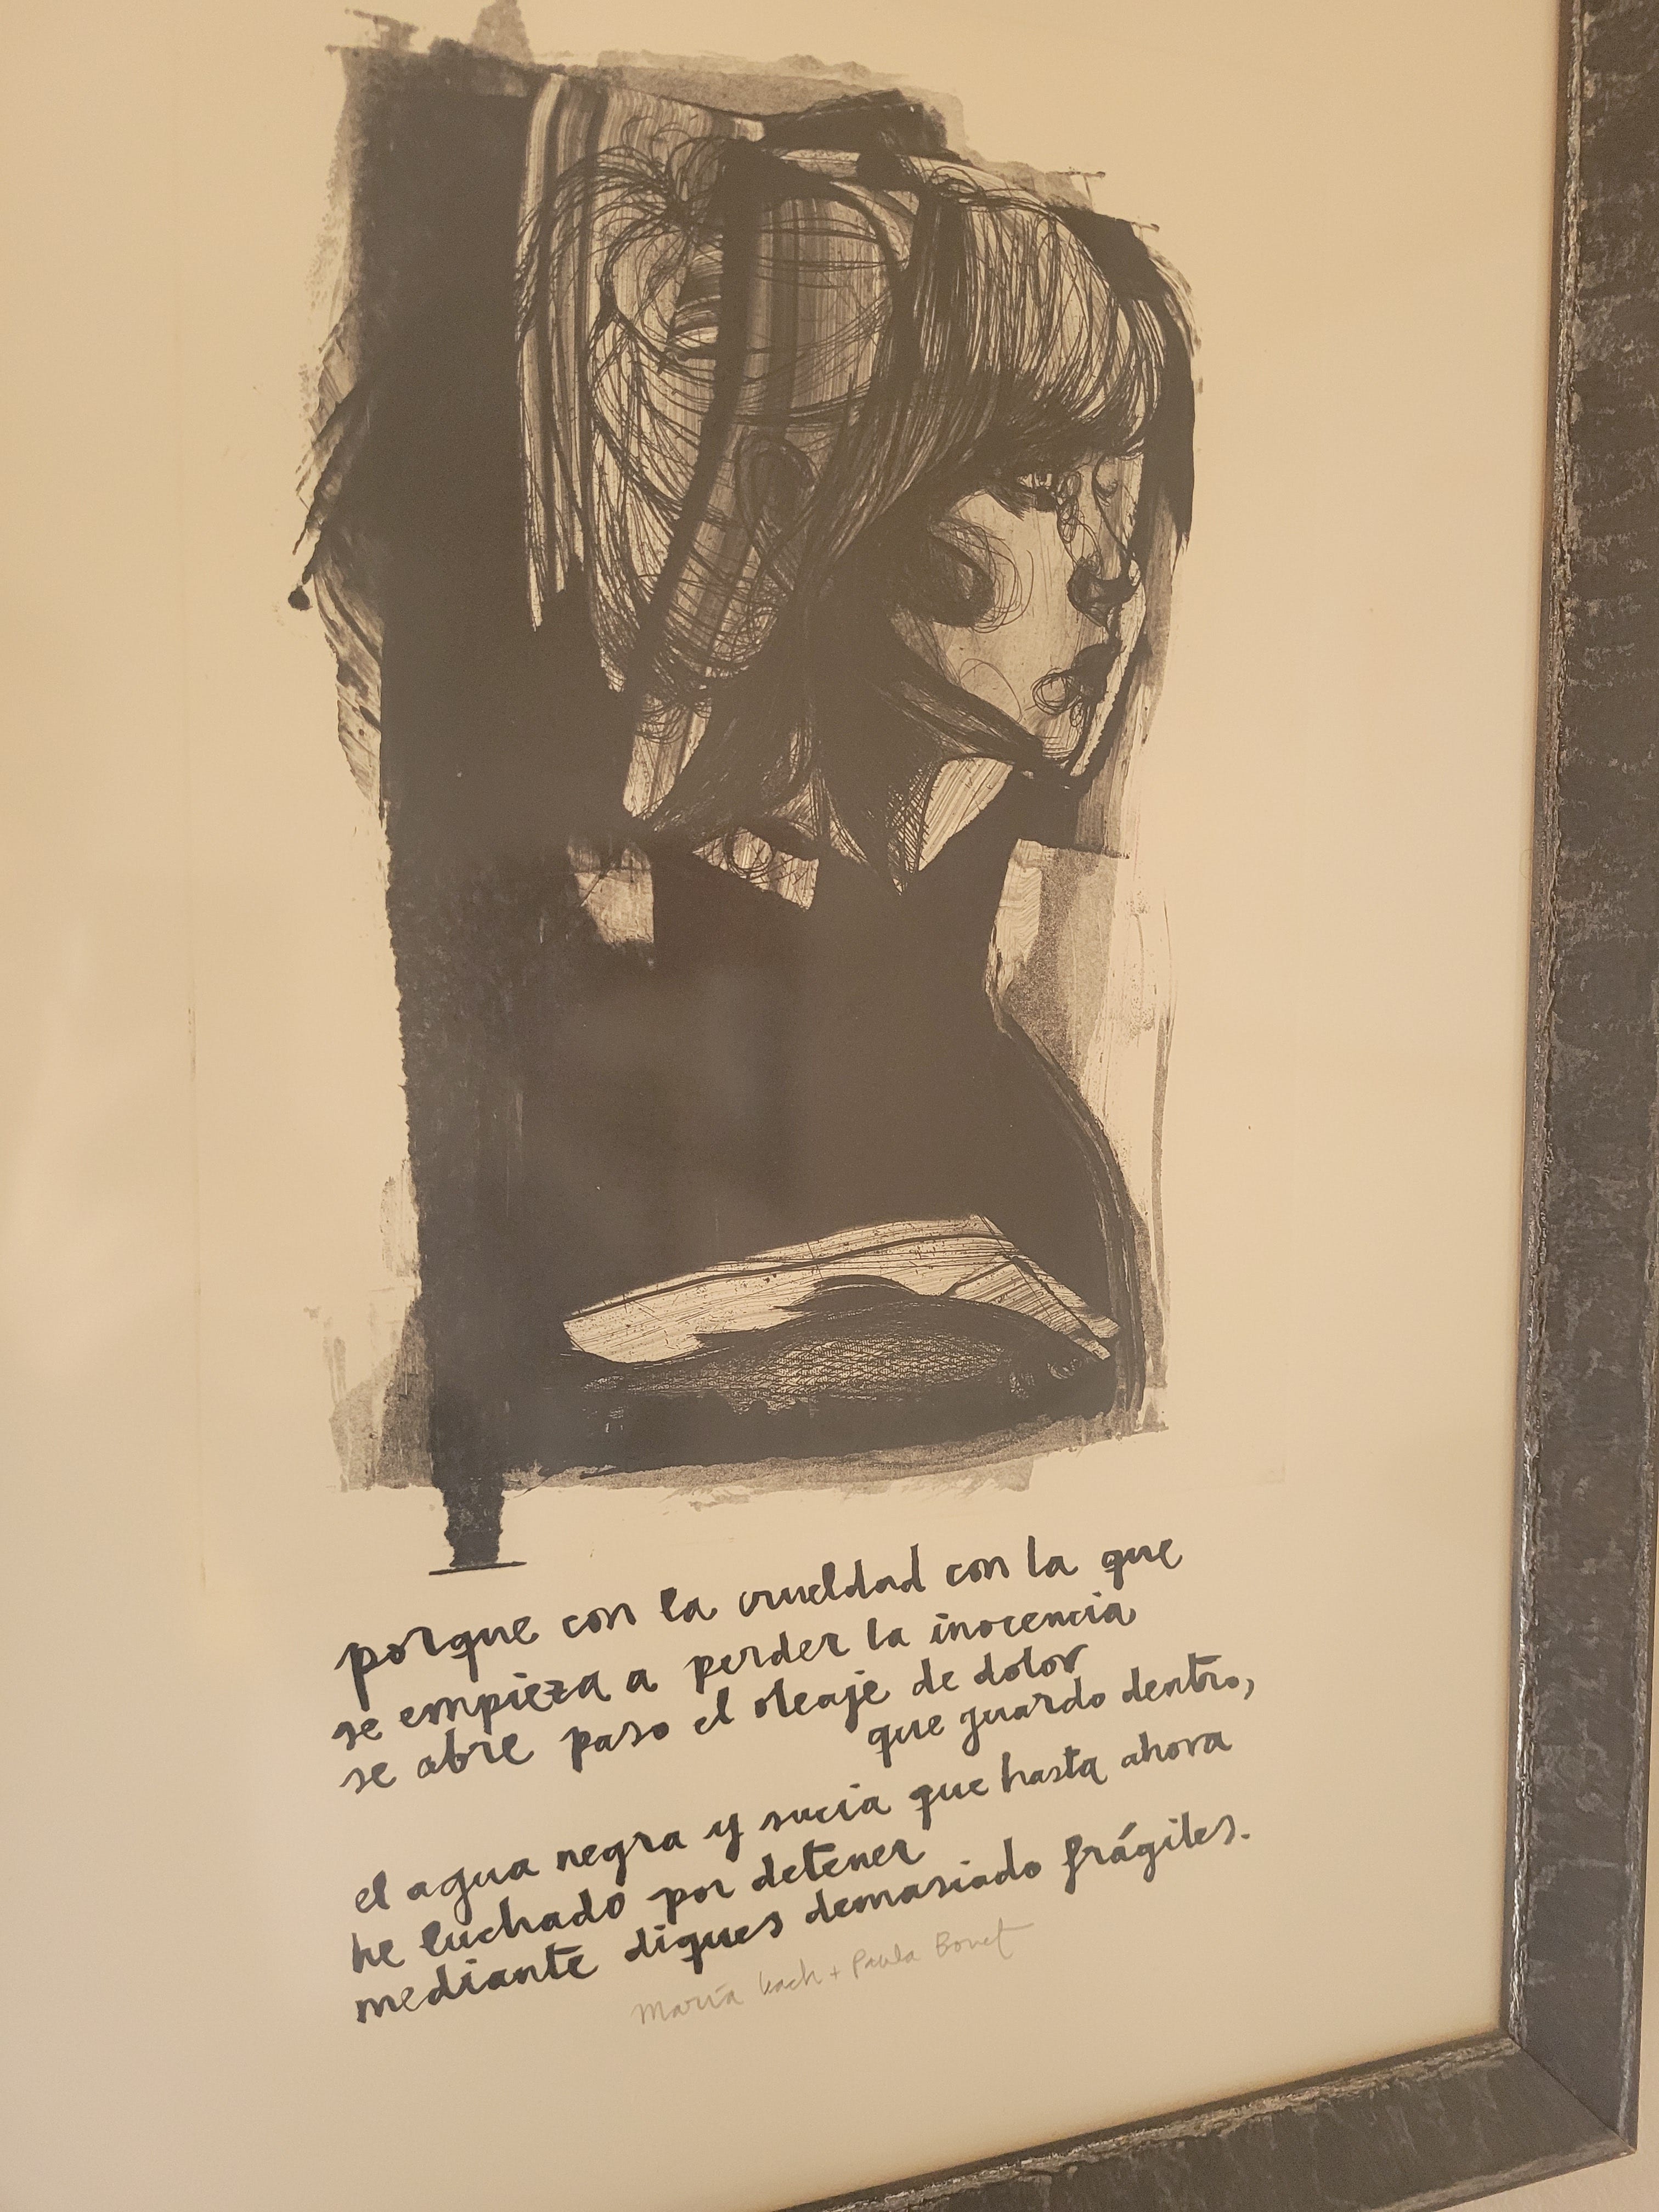 porque con la crueldad con la que
se empieza a perder la inocencia
se abre paso el oleaje de dolor
que guardo dentro,
el agua negra y sucia que hasta ahora
he luchado por detener
mediante diques demasiado frágiles.
María Leach + Paula Bonet